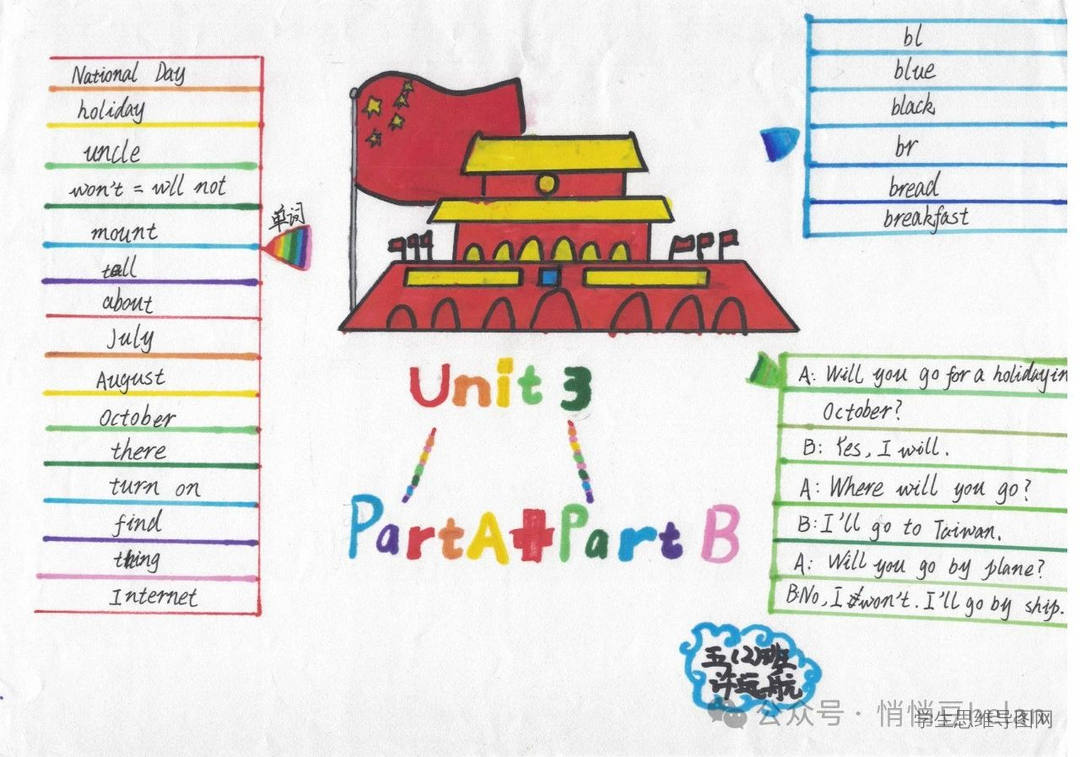 National Day
holiday
uncle
won't = wll not
mount
tall
about
July
August
October
there
turn on
find
thing
Internet
单词
bl
blue
black
br
bread
breakfast
Unit 3
Part A + Part B
A: Will you go for a holiday in
October?
B: Yes, I will.
A: Where will you go?
B: I'll go to Taiwan.
A: Will you go by plane?
B: No, I won't. I'll go by ship.
五(2)班
许远航
公众号 · 悄悄豆
学生思维导图网